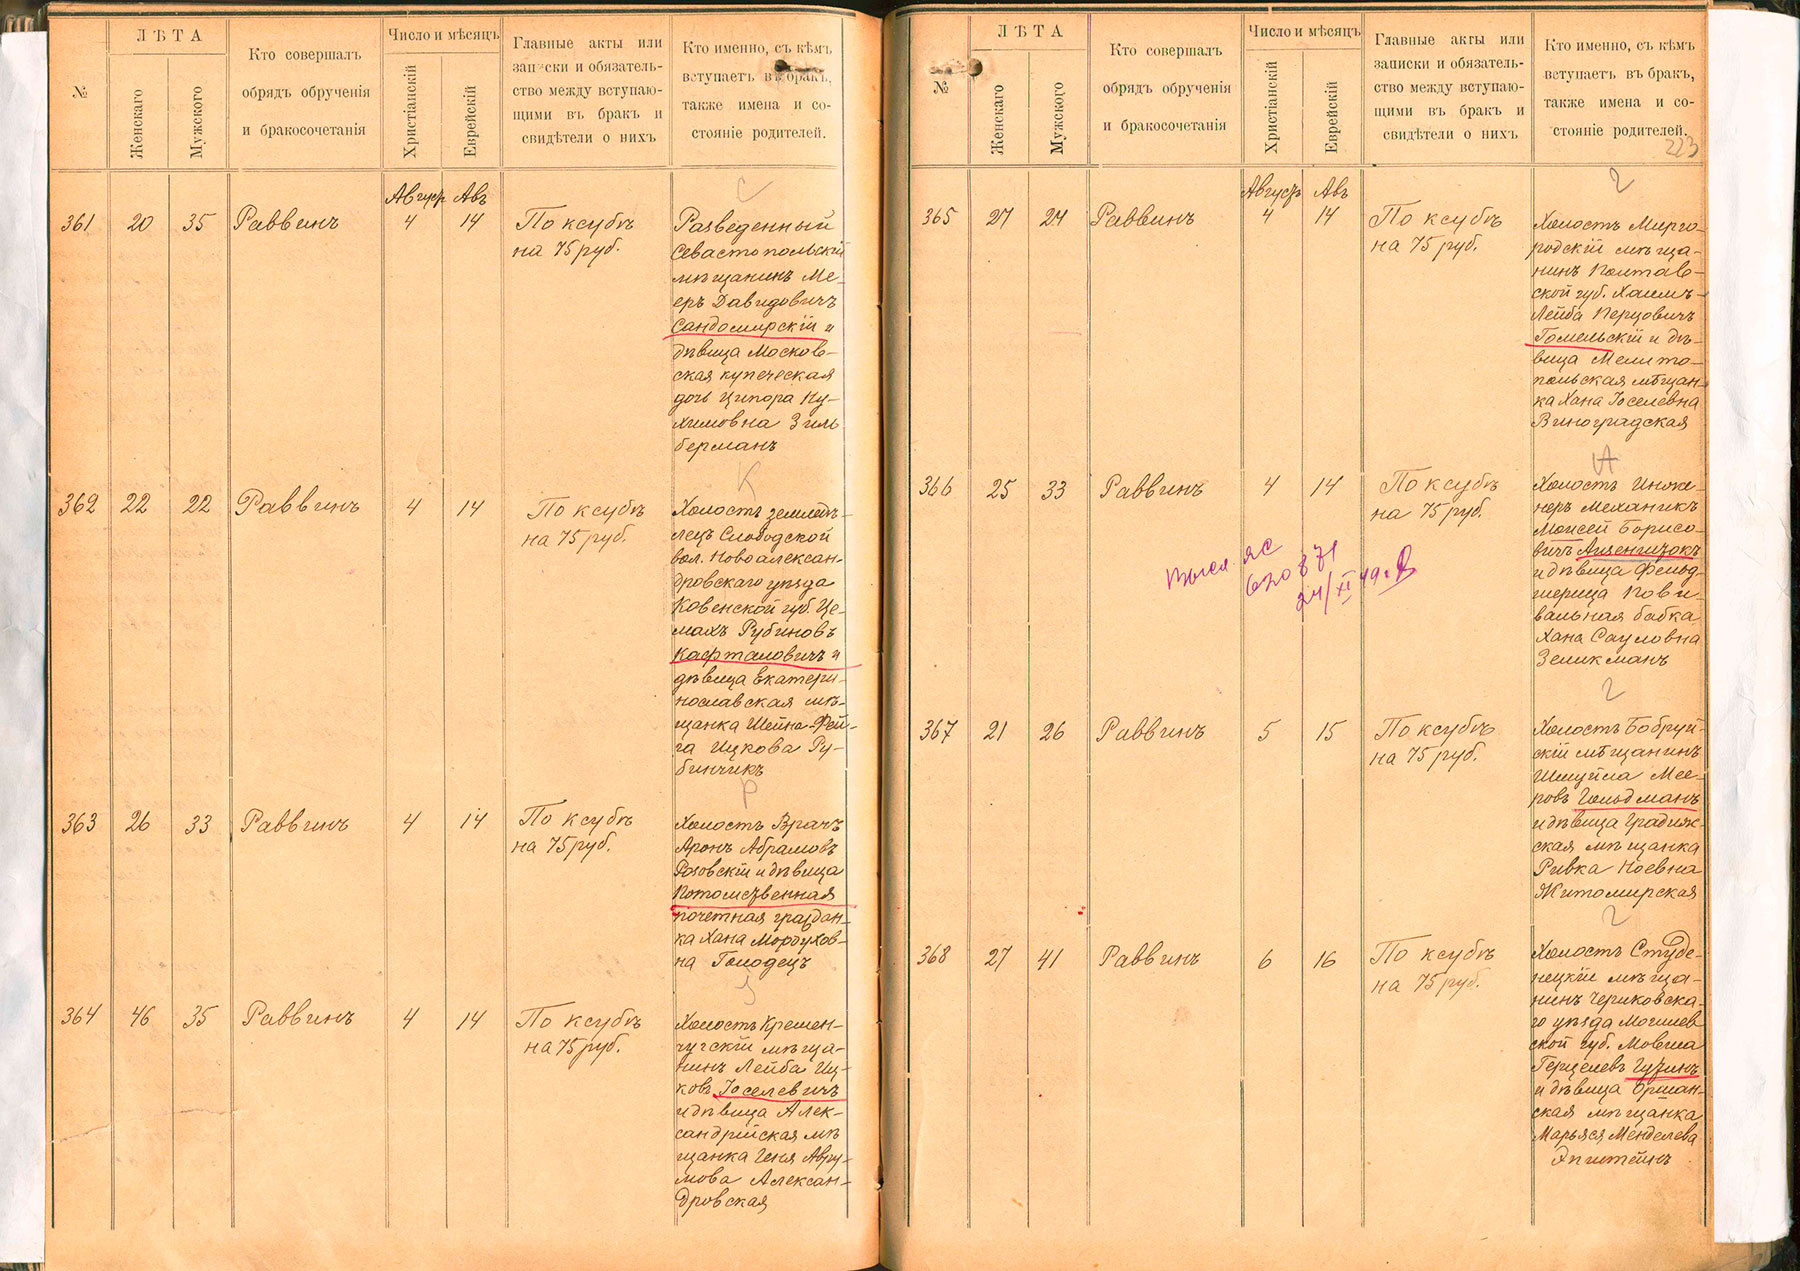 №
ЛѢТА
Женскаго
Мужского
Кто совершалъ
обрядъ обрученія
и бракосочетанія
Число и мѣсяцъ
Христіанскій
Еврейскій
Главные акты или
записки и обязатель-
ство между вступаю-
щими въ бракъ и
свидѣтели о нихъ
Кто именно, съ кѣмъ
вступаетъ въ бракъ,
также имена и со-
стояніе родителей.
С
Августъ Авъ
361 20 35 Раввинъ 4 14
По ксубѣ
на 75 руб.
Разведенный
Севастопольскій
мѣщанинъ Ме-
еръ Давидовичъ
Сандомирскій и
дѣвица Москов-
ская купеческая
дочь Ципора Ну-
химовна Зиль
берманъ
К
362 22 22 Раввинъ 4 14
По ксубѣ
на 75 руб.
Холостъ земледѣ-
лецъ Слободской
вол. Новоалексан-
дровскаго уѣзда
Ковенской губ. Це-
махъ Рубиновъ
Кафталовичъ и
дѣвица Екатери-
нославская мѣ-
щанка Шейна-Фей-
га Ицкова Ру-
бинчикъ
Р
363 26 33 Раввинъ 4 14
По ксубѣ
на 75 руб.
Холостъ Врачъ
Аронъ Абрамовъ
Розовскій и дѣвица
Потомственная
почетная граждан-
ка Хана Мордухов-
на Голодецъ
364 46 35 Раввинъ 4 14
По ксубѣ
на 75 руб.
Холостъ Кремен-
чугскій мѣща-
нинъ Лейба Иц-
ковъ Іоселевичъ
и дѣвица Алек-
сандрійская мѣ
щанка Геня Авру-
мова Алексан-
дровская
№
ЛѢТА
Женскаго
Мужского
Кто совершалъ
обрядъ обрученія
и бракосочетанія
Число и мѣсяцъ
Христіанскій
Еврейскій
Главные акты или
записки и обязатель-
ство между вступаю-
щими въ бракъ и
свидѣтели о нихъ
Кто именно, съ кѣмъ
вступаетъ въ бракъ,
также имена и со-
стояніе родителей.
223
Августъ Авъ
365 27 24 Раввинъ 4 14
По ксубѣ
на 75 руб.
Холостъ Мирго-
родскій мѣща-
нинъ Полтав-
ской губ. Хаимъ-
Лейба Перцовичъ
Гомельскій и дѣ-
вица Мелито-
польская мѣщан-
ка Хана Іоселевна
Виноградская
А
366 25 33 Раввинъ 4 14
По ксубѣ
на 75 руб.
Холостъ Инже-
неръ Механикъ
Моисей Борисо-
вичъ Айзенштокъ
и дѣвица Фельд-
шерица Пови-
вальная бабка
Хана Сауловна
Зеликманъ
620871
24/XI 49 г.
367 21 26 Раввинъ 5 15
По ксубѣ
на 75 руб.
Холостъ Бобруй-
скій мѣщанинъ
Шмуйла Мее-
ровъ Гольдманъ
и дѣвица Градиж-
ская мѣщанка
Ривка Ноевна
Житомирская
368 27 41 Раввинъ 6 16
По ксубѣ
на 75 руб.
Холостъ Студе-
нецкій мѣща-
нинъ Чериковска-
го уѣзда Могилев
ской губ. Мовша
Герцелевъ Гузинъ
и дѣвица Оршан-
ская мѣщанка
Марьяся Менделева
Эпштейнъ